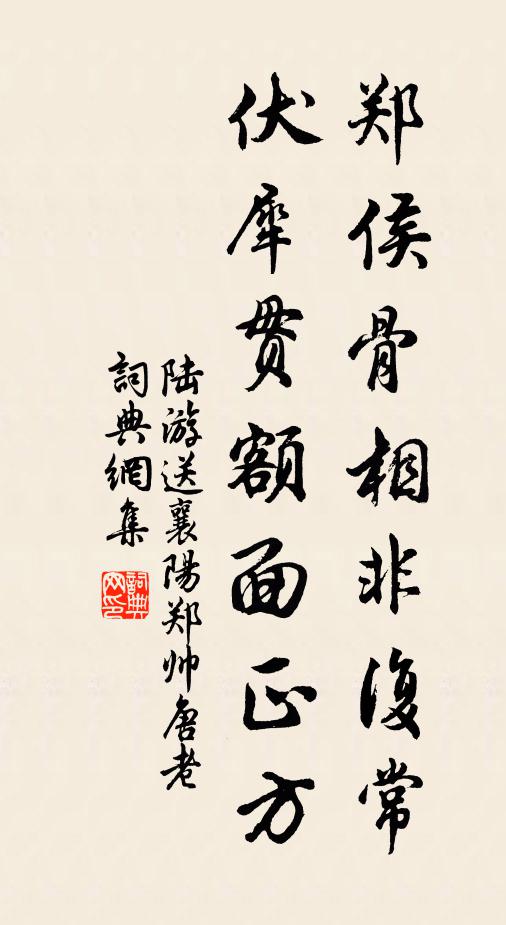 郑侯骨相非復常
伏犀贯额面正方
陆游送襄陽郑帅唐老
詞典網集
詞典
网印